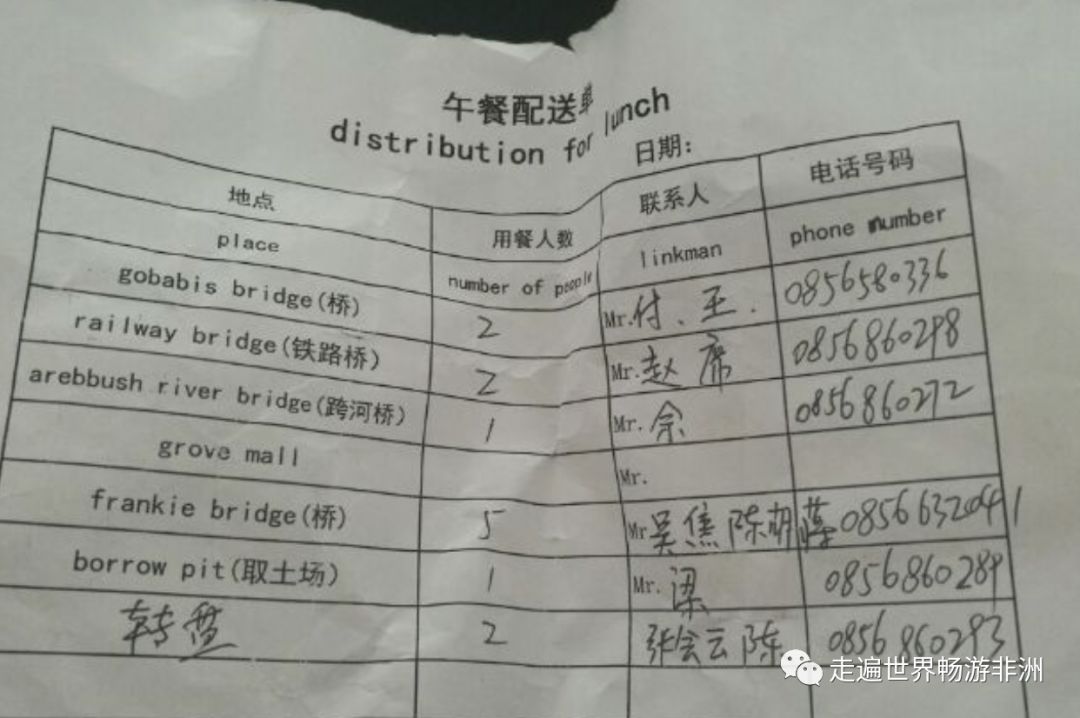 午餐配送单
distribution for lunch
日期:
地点 用餐人数 联系人 电话号码
place number of people linkman phone number
gobabis bridge(桥) 2 Mr.付、王. 0856580336
railway bridge(铁路桥) 2 Mr.赵 席 0856860298
arebbush river bridge(跨河桥) 1 Mr.余 0856860272
grove mall Mr.
frankie bridge(桥) 5 Mr吴焦陈胡 08566320411
borrow pit(取土场) 1 Mr.梁 0856860289
转盘 2 张会云 陈 0856860293
走遍世界畅游非洲